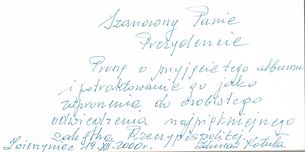 Szanowny Panie
Prezydencie
Proszę o przyjęcie tego albumu
i potraktowanie go jako
zaproszenia do osobistego
odwiedzenia najpiękniejszego
zakątka Rzeczypospolitej
Zwierzyniec 19.XII.2000r.